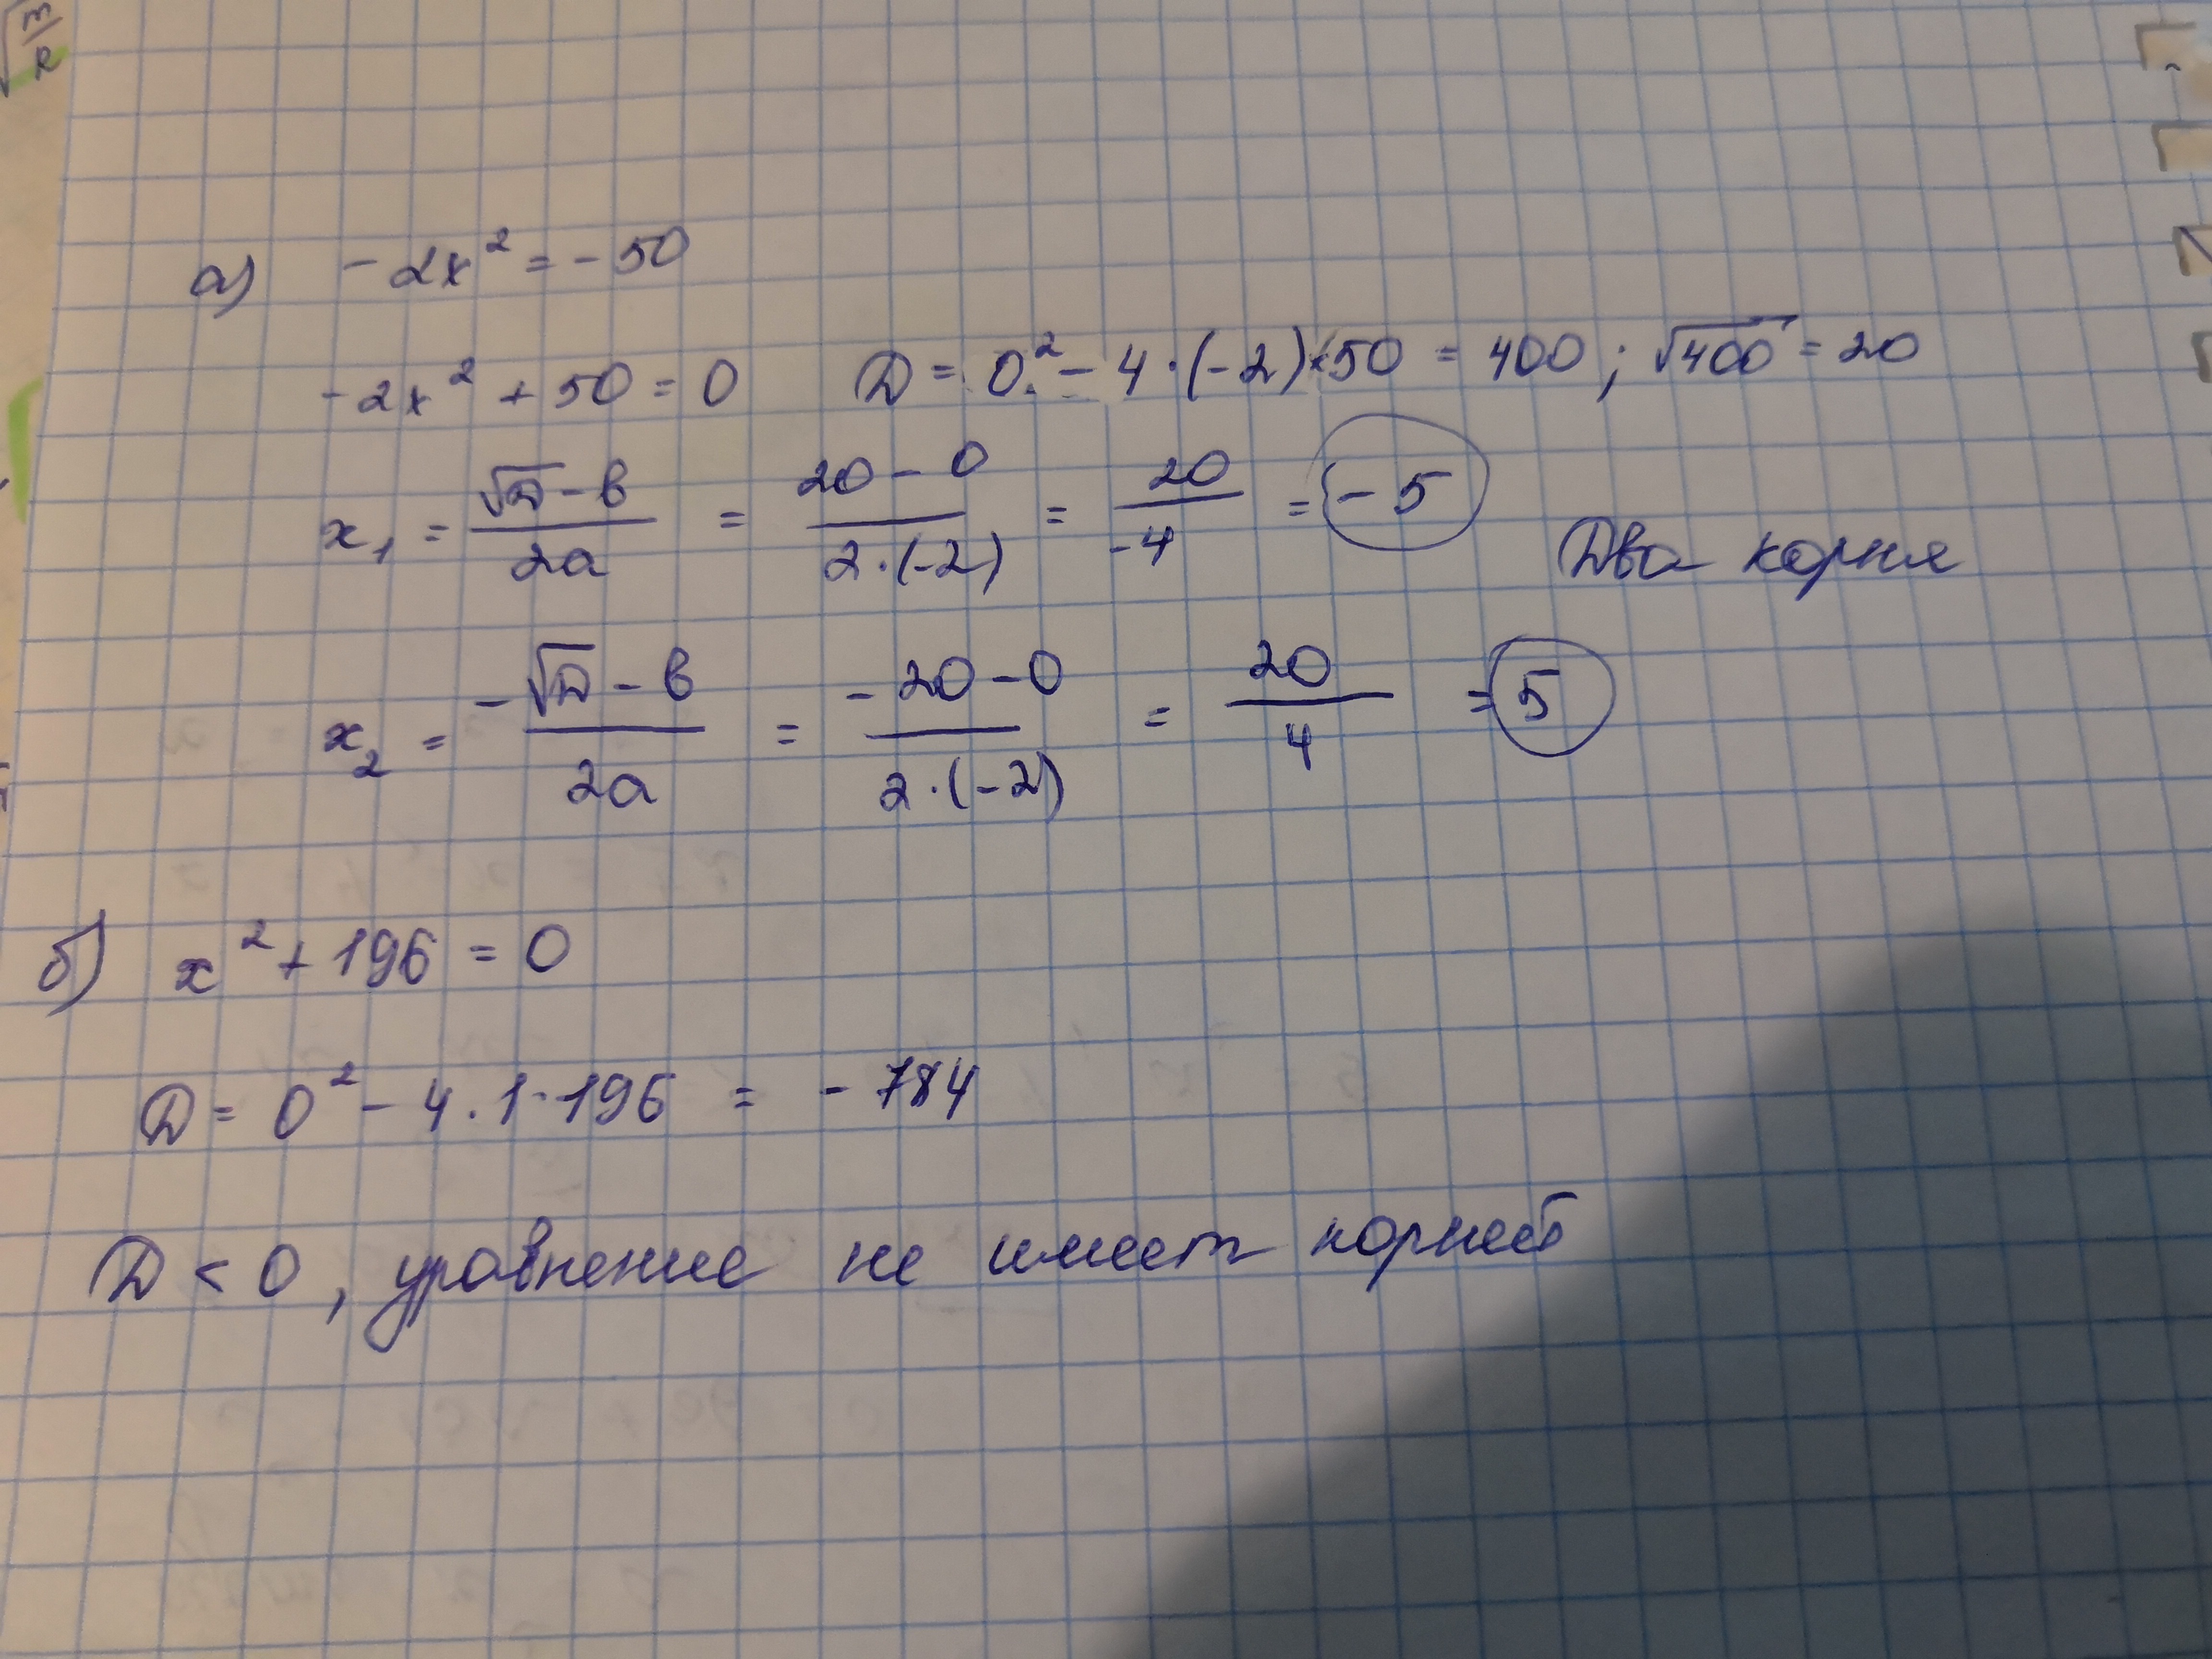 √m/R
а) -2x² = -50
-2x² + 50 = 0 D = 0² - 4·(-2)·50 = 400 ; √400 = 20
x₁ = (√D - b)/2a = (20 - 0)/(2·(-2)) = 20/-4 = -5
Два корня
x₂ = (-√D - b)/2a = (-20 - 0)/(2·(-2)) = 20/4 = 5
б) x² + 196 = 0
D = 0² - 4·1·196 = -784
D < 0, уравнение не имеет корней